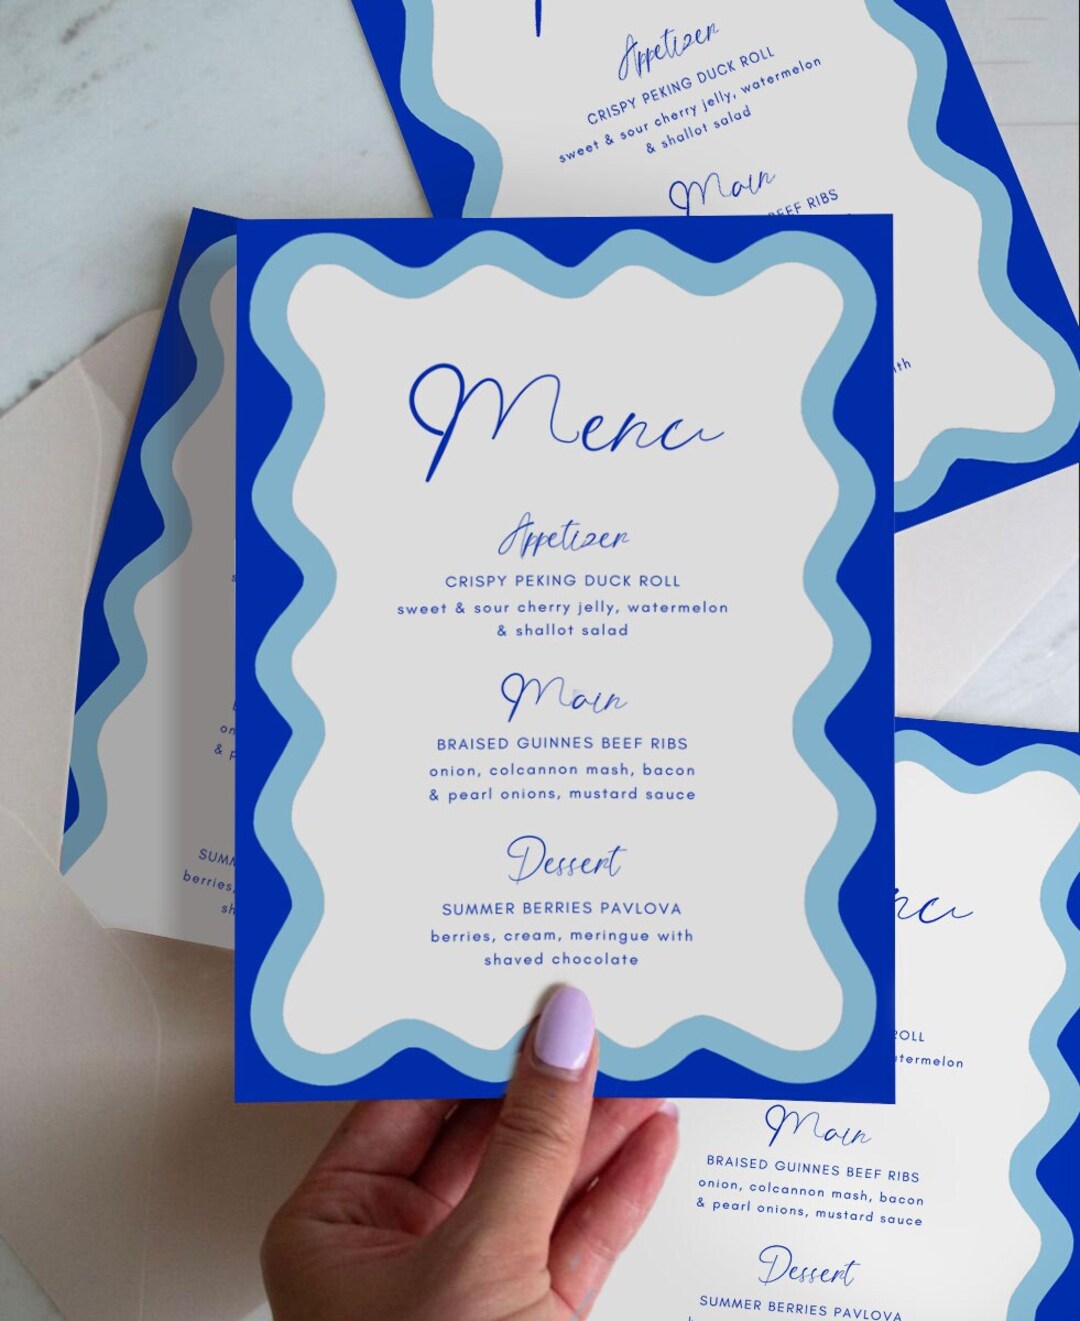 Appetizer
CRISPY PEKING DUCK ROLL
sweet & sour cherry jelly, watermelon
& shallot salad
Main
BEEF RIBS
Menu
Appetizer
CRISPY PEKING DUCK ROLL
sweet & sour cherry jelly, watermelon
& shallot salad
Main
BRAISED GUINNES BEEF RIBS
onion, colcannon mash, bacon
& pearl onions, mustard sauce
Dessert
SUMMER BERRIES PAVLOVA
berries, cream, meringue with
shaved chocolate
berries,
ROLL
Main
BRAISED GUINNES BEEF RIBS
onion, colcannon mash, bacon
& pearl onions, mustard sauce
Dessert
SUMMER BERRIES PAVLOVA